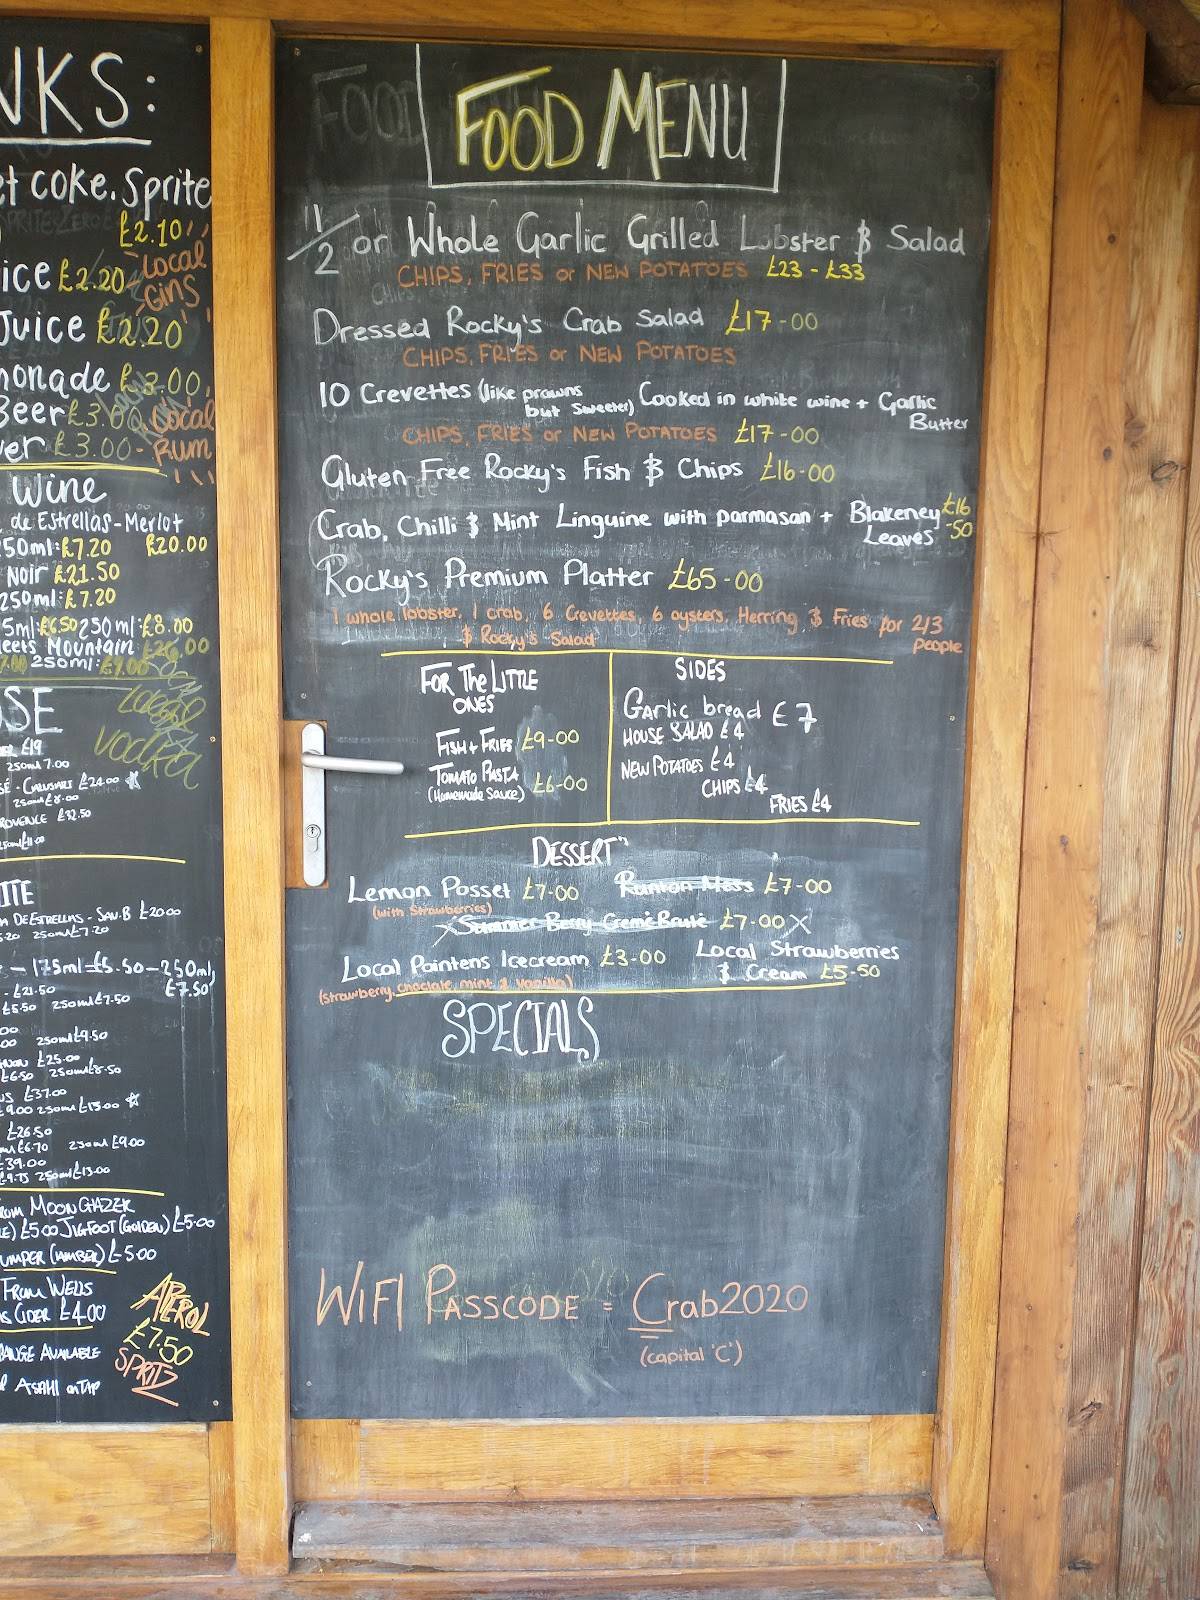 NKS:
et COKE. Sprite
£2.10
ice £2.20 - Local
Gins
Juice £2.20
monade £3.00
Beer £3.00 Local
ver £3.00 - Rum
Wine
de Estrellas - Merlot
250ml: £7.20 £20.00
Noir £21.50
250ml: £7.20
5ml: £6.50 250ml: £8.00
Meets Mountain £26.00
7.00 250ml: £9.00
Local
Vodka
SE
£19
250ml 7.00
£24.00
250ml £8.00
ROVENCE £32.50
250ml £11.00
ITE
DE ESTRELLAS - SAU.B £20.00
5.20 250ml £7.20
- 175ml = £5.50 - 250ml,
£7.50
- £21.50
£5.50 250ml £7.50
250ml £9.50
£25.00
£6.50 250ml £8.50
US £37.00
£9.00 250ml £13.00
£26.50
£6.70 250ml £9.00
£39.00
£9.75 250ml £13.00
From MOONGAZER
£5.00 JIGFOOT (GOLDEN) £5.00
UMPER (AMBER) £5.00
From WELLS
CIDER £4.00
APEROL
£7.50
SPRITZ
RANGE AVAILABLE
ASAHI on TAP
FOOD MENU
1/2 or Whole Garlic Grilled Lobster & Salad
CHIPS, FRIES or NEW POTATOES £23 - £33
Dressed Rocky's Crab Salad £17-00
CHIPS, FRIES or NEW POTATOES
10 Crevettes (like prawns but sweeter) Cooked in white wine + Garlic
Butter
CHIPS, FRIES or NEW POTATOES £17-00
Gluten Free Rocky's Fish & Chips £16-00
Crab, Chilli & Mint Linguine with parmasan + Blakeney £16
Leaves -50
Rocky's Premium Platter £65-00
1 whole lobster, 1 crab, 6 Crevettes, 6 oysters, Herring & Fries for 2/3
& Rocky's Salad people
FOR The LITTLE
ONES
FISH + FRIES £9-00
TOMATO PASTA £6-00
(Homemade Sauce)
SIDES
Garlic bread £7
HOUSE SALAD £4
NEW POTATOES £4
CHIPS £4
FRIES £4
DESSERT
Lemon Posset £7-00 Runton Mess £7-00
(with Strawberries)
Summer Berry Creme Brulé £7-00
Local Ice cream £3-00 Local Strawberries
& Cream £5-50
(strawberry, choclate, mint & vanilla)
SPECIALS
WIFI PASSCODE = Crab2020
(capital 'C')